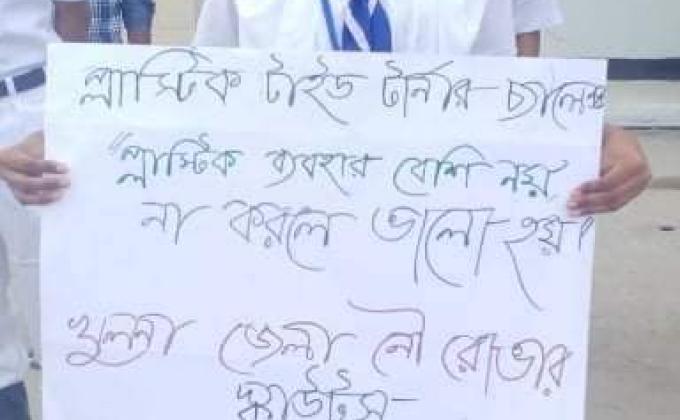 প্লাস্টিক টাইড টার্নার চ্যালেঞ্জ
"প্লাস্টিক ব্যবহার বেশি নয়
না করলে ভালো হয়।
খুলনা জেলা নৌ রোভার
স্কাউটস